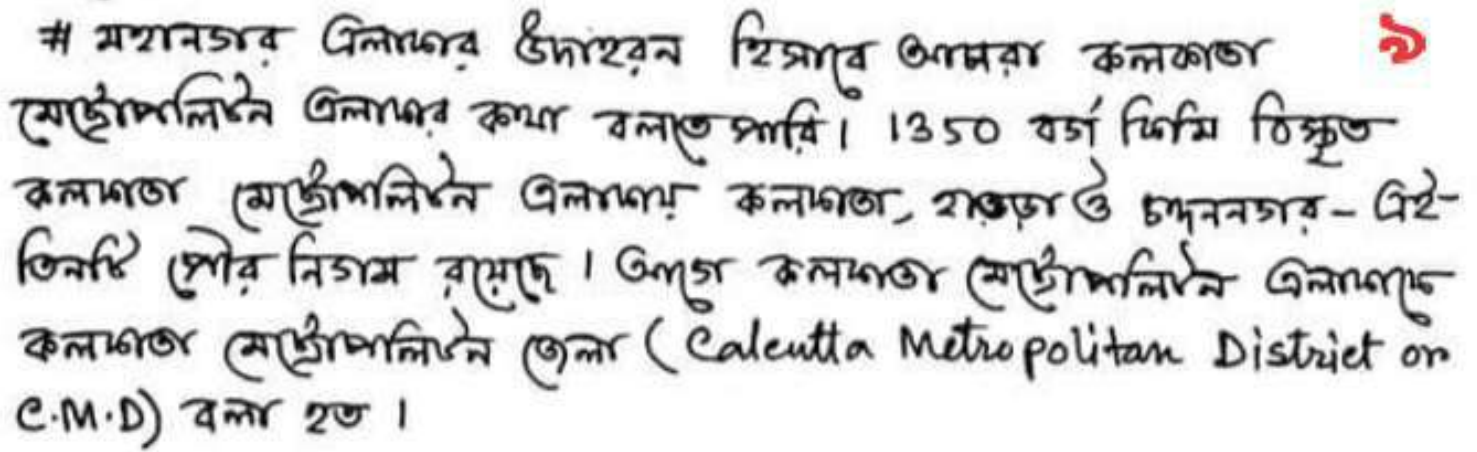 # মহানগর এলাকার উদাহরন হিসাবে আমরা কলকাতা ৯
মেট্রোপলিটন এলাকার কথা বলতে পারি। 1350 বর্গ কিমি বিস্তৃত
কলকাতা মেট্রোপলিটন এলাকায় কলকাতা, হাওড়া ও চন্দননগর - এই
তিনটি পৌর নিগম রয়েছে। আগে কলকাতা মেট্রোপলিটন এলাকাকে
কলকাতা মেট্রোপলিটন জেলা (Calcutta Metropolitan District or
C.M.D) বলা হত।